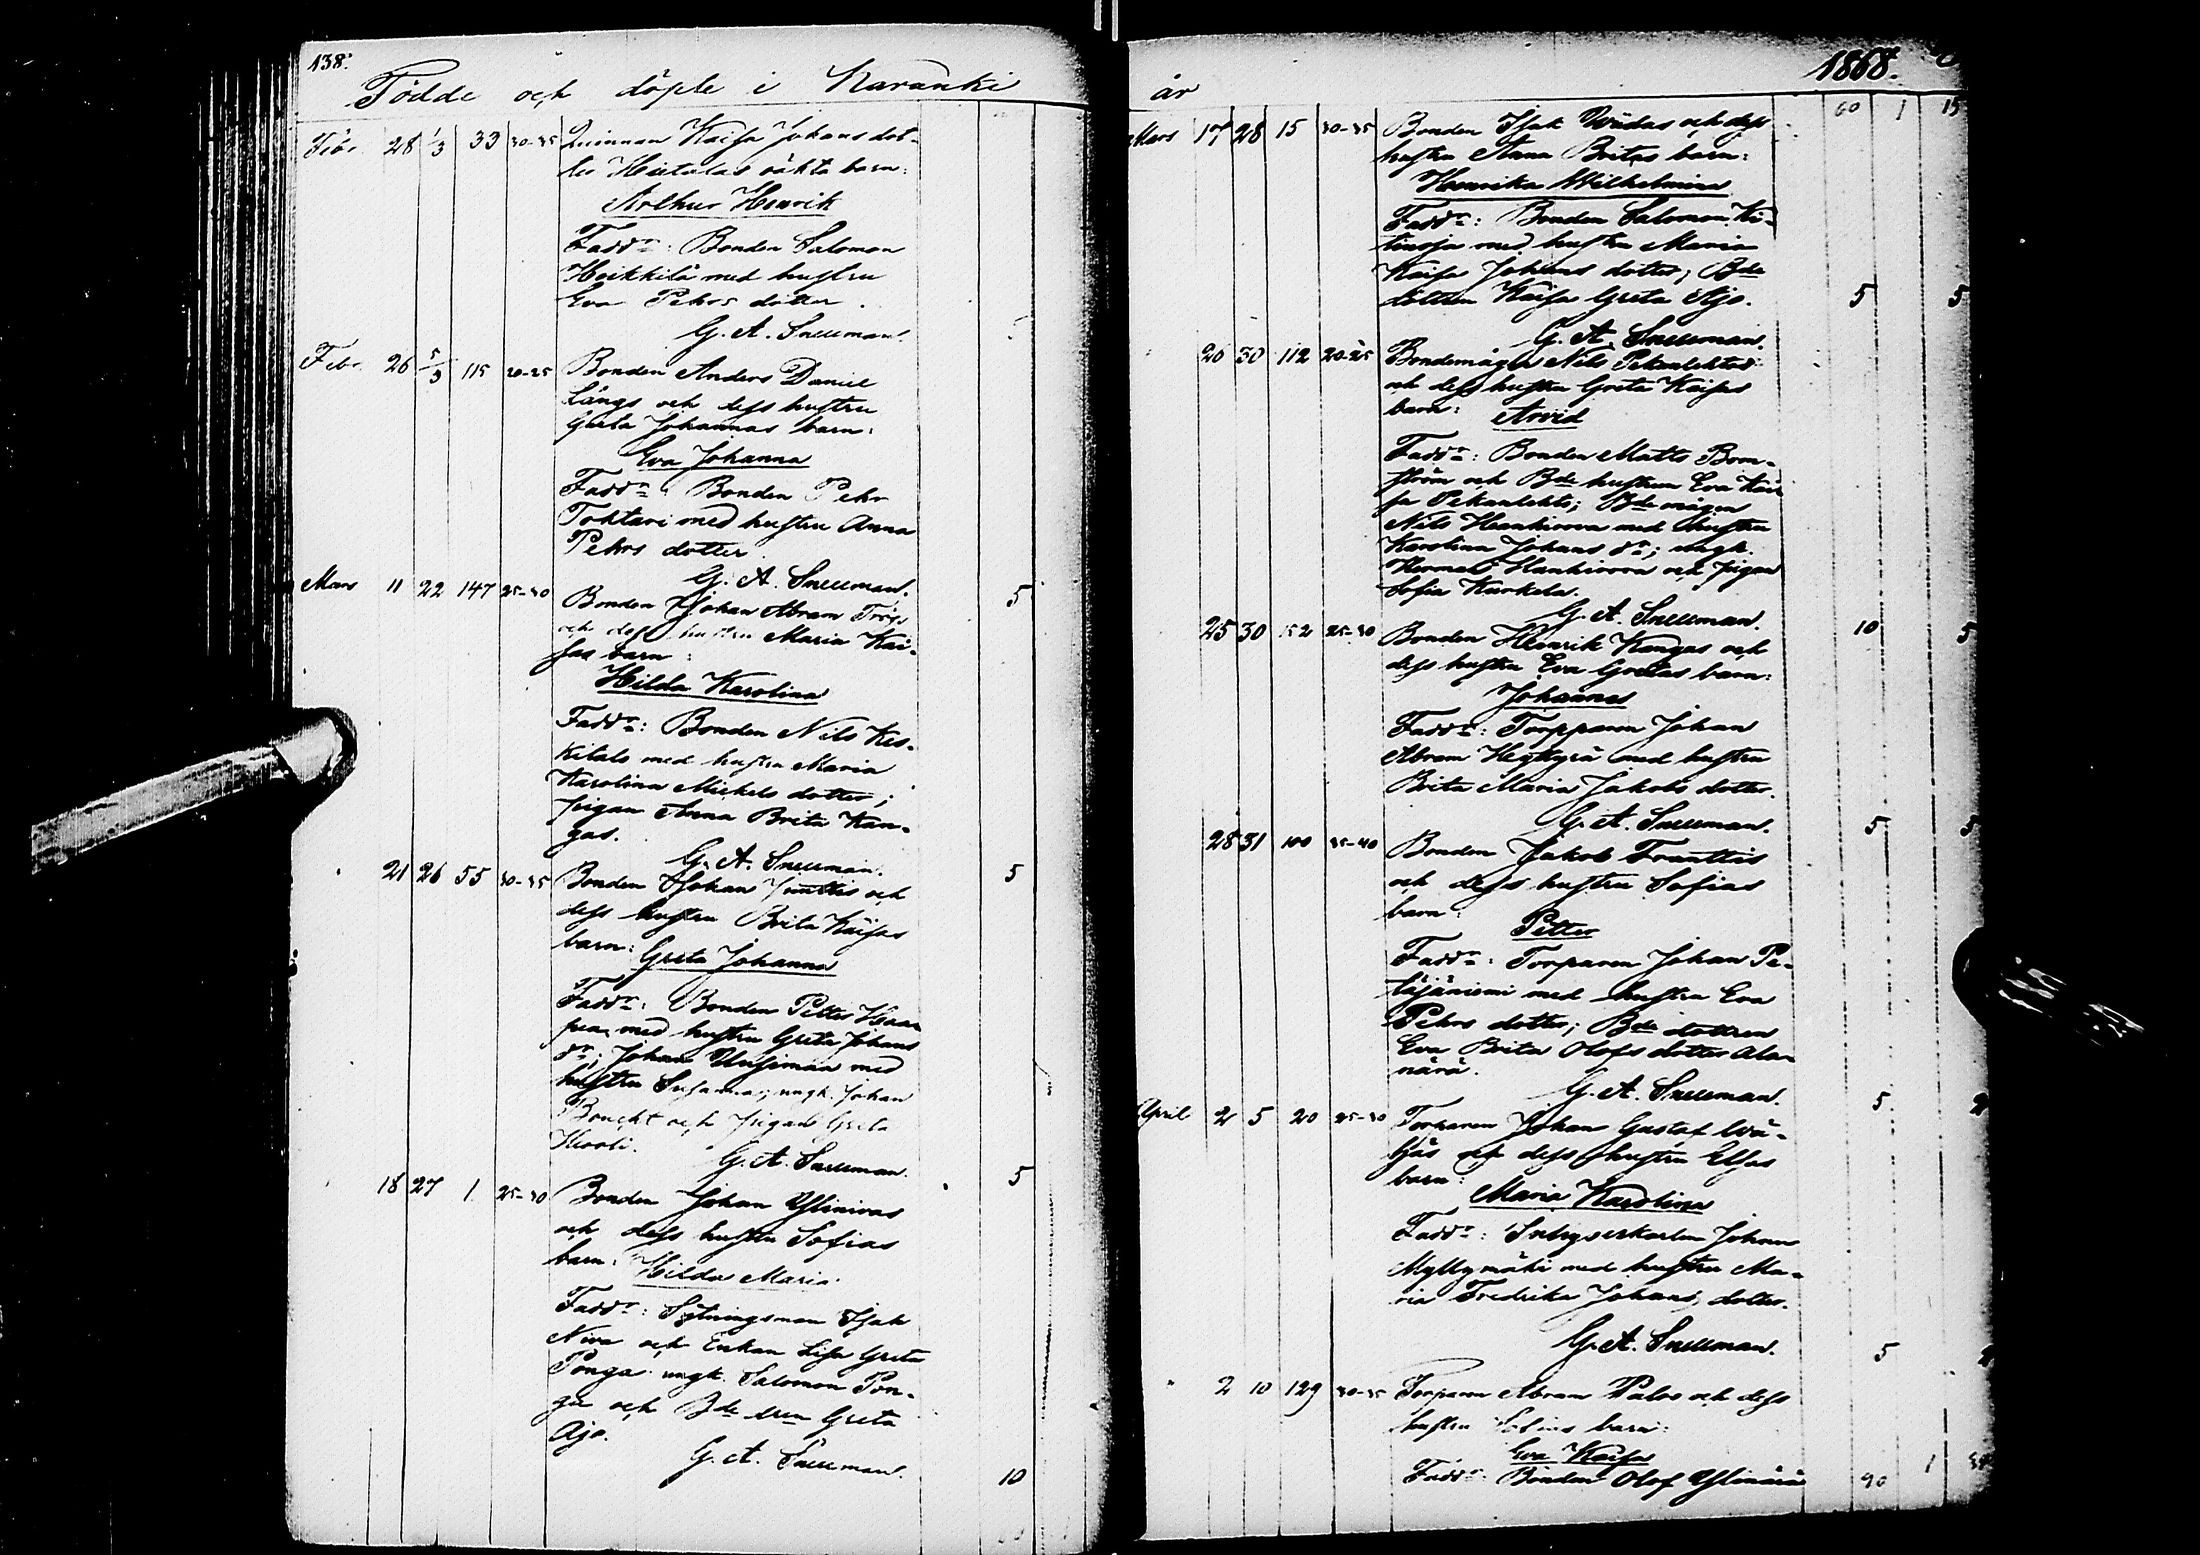 138.
Födde och döpte i Karunki
Febr. 28 1/3 33 30-35 Qvinnan Kaisa Johans dot-
ter Hietalas oäkta barn:
Arthur Henrik
Faddr: Bonden Salomon
Heikkilä med hustru
Eva Pehrs dotter.
G. A. Snellman.
5
Febr. 26 5/3 115 20-25 Bonden Anders Daniel
Längs och dess hustru
Greta Johannas barn:
Eva Johanna
Faddr: Bonden Pehr
Tohtari med hustru Anna
Pehrs dotter
G. A. Snellman.
5
Mars 11 22 147 25-30 Bonden Johan Abram
och dess hustru Maria Kai-
sas barn:
Hilda Karolina
Faddr: Bonden Nils Kes-
kitalo med hustru Maria
Karolina Michels dotter;
pigan Anna Brita Kan-
gas.
G. A. Snellman.
5
21 26 55 30-35 Bonden Johan Junttis och
dess hustru Brita Kaisas
barn: Greta Johanna
Faddr: Bonden Petter Haa-
pea med hustru Greta Johans
dr; Johan Uusimaa med
hustru Susanna; ungk. Johan
Boucht och pigan Greta
G. A. Snellman.
5
18 27 1 25-30 Bonden Johan Ylinivas
och dess hustru Sofias
barn: Hilda Maria
Faddr: Sytningsman Isak
Niva och Enkan Lisa Greta
Ponga ungk. Salomon Pon-
ga och Bde Greta
Ajo.
G. A. Snellman.
10
år 1868.
60 1 15
Mars 17 28 15 30-35 Bonden Isak och dess
hustru Anna Britas barn:
Henrika Wilhelmina
Faddr: Bonden Salomon Ki-
tinoja med hustru Maria
Kaisa Johans dotter; Bde
dottren Kaisa Greta Ajo.
5 5
G. A. Snellman.
20 30 112 20-25 Bondemågen Nils Pekanlehtos
och dess hustru Greta Kaisas
barn: Arvid
Faddr: Bonden Matts Bom-
ström och Bde hustrun Eva Kai-
sa Pekanlehto; Bde mågen
Nils Hankivova med hustru
Karolina Johans dr; ungk.
Herman Hankivova och pigan
Sofia Kurkela.
G. A. Snellman.
10 5
25 30 152 25-30 Bonden Henrik Kangas och
dess hustru Eva Gretas barn:
Johannes
Faddr: Torpparen Johan
Abram Heykyrä med hustru
Brita Maria Jakobs dotter.
G. A. Snellman.
5 5
28 31 100 35-40 Bonden Jakob Frunttis
och dess hustru Sofias
barn:
Petter
Faddr: Torparen Johan Pe-
täjäniemi med hustru Eva
Pehrs dotter; Bde dottren
Eva Brita Olofs dotter Ala-
närä.
G. A. Snellman.
5
April 2 5 20 25-30 Torparen Johan Gustaf Wä-
ljäs och dess hustru Elsas
barn:
Maria Karolina
Faddr: Inhysekarlen Johan
Myllymäki med hustru Ma-
ria Fredrika Johans dotter.
G. A. Snellman.
5
2 10 129 30-35 Torparen Abram Palos och dess
hustru barn:
Eva Kaisa
Faddr: Bonden Olof Ylinärä
90 1